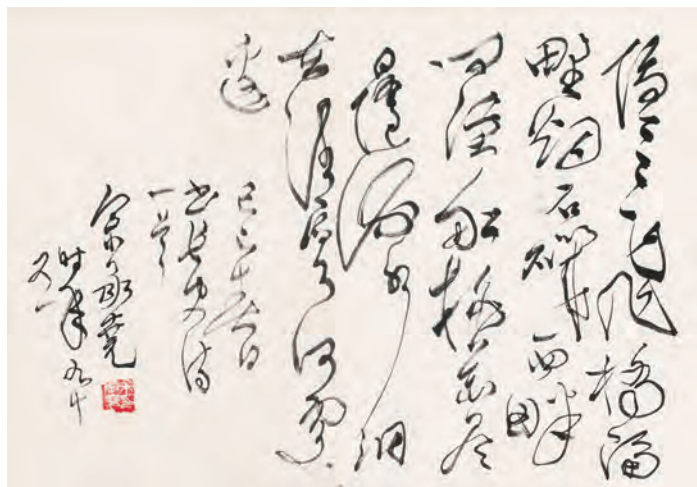 隱隱飛橋隔
野烟石磯西畔
問漁船桃花盡
日隨流水洞
在清溪何處
邊
己亥日
書長史詩
一首
時年九十
又一